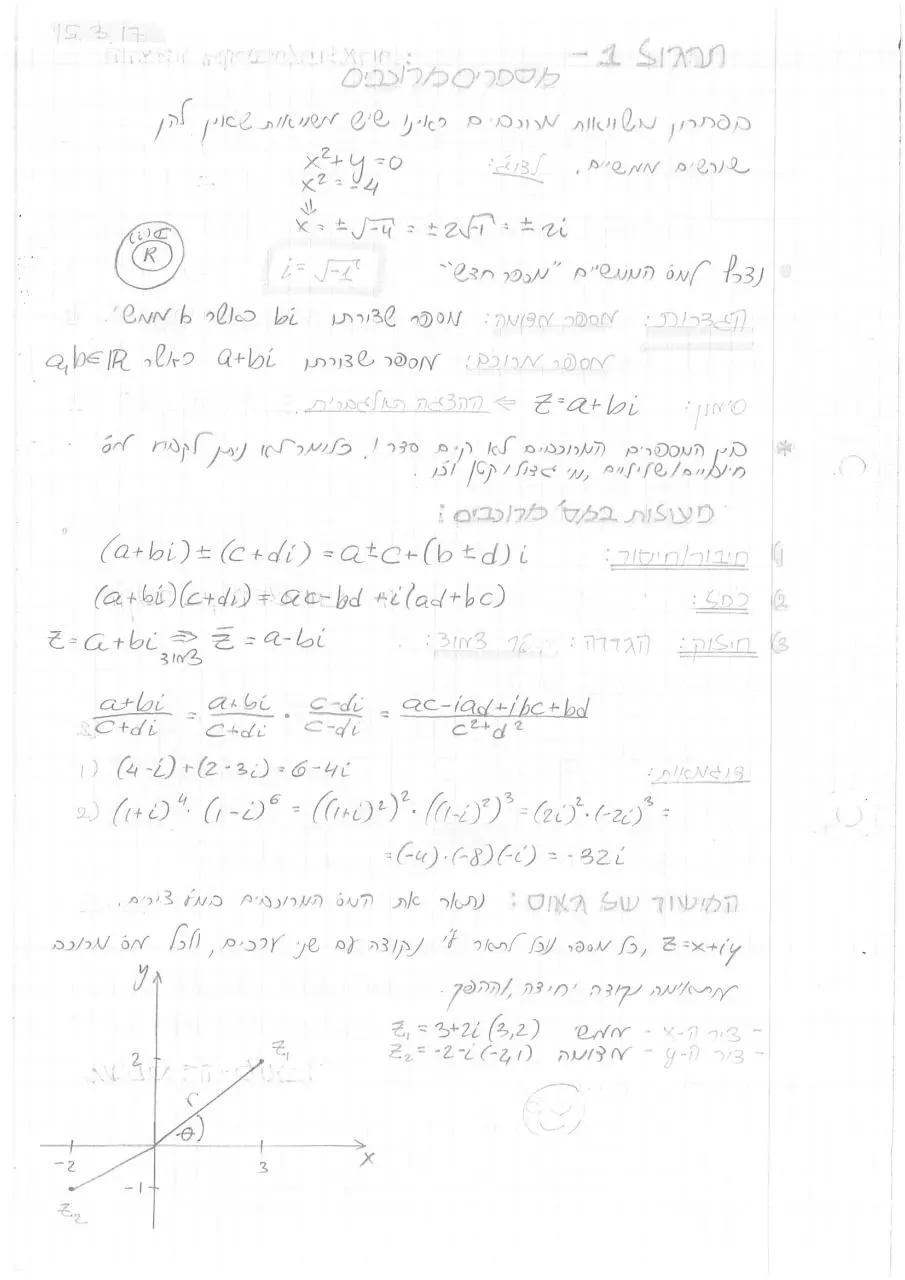 15.3.17
תרגול 1 -
מספרים מרוכבים
בפתרון משוואות מרוכבים ראינו שיש משוואות שאין להן
שורשים ממשיים. לדוג': x²+y=0
x²=-4
⇓
x = ±√-4 = ±2√-1 = ±2i
(i) ℂ
R
נצרף למס' הממשיים "מספר חדש" i=√-1
הגדרות: מספר מדומה: מספר שצורתו bi כאשר b ממשי.
מספר מרוכב: מספר שצורתו a+bi כאשר a,b∈ℝ
סימון: z=a+bi ⇐ ההצגה האלגברית
* בין המספרים המרוכבים לא קיים סדר! כלומר לא ניתן לקבוע מס'
חיוביים/שליליים, מי גדול/קטן וכו'.
פעולות במס' מרוכבים:
1) חיבור/חיסור: (a+bi)±(c+di)=a±c+(b±d)i
2) כפל: (a+bi)(c+di)=ac-bd+i(ad+bc)
3) חילוק: הגדרה: צמוד: z=a+bi ⇒ z̄=a-bi
צמוד
(a+bi)/(c+di) = (a+bi)/(c+di) · (c-di)/(c-di) = (ac-iad+ibc+bd)/(c²+d²)
דוגמאות:
1) (4-i)+(2-3i)=6-4i
2) (1+i)⁴·(1-i)⁶ = ((1+i)²)²·((1-i)²)³=(2i)²·(-2i)³=
=(-4)·(-8)(-i)=-32i
המישור של גאוס: נתאר את המס' המרוכבים במע' צירים.
z=x+iy, כל מספר נוכל לתאר ע"י נקודה עם שני ערכים, ולכל מס' מרוכב
מתאימה נקודה יחידה, וההפך.
- ציר ה-x - ממשי z₁=3+2i (3,2)
- ציר ה-y - מדומה z₂=-2-i (-2,1)
y
2
z₁
r
θ
-2
3
x
-1
z₂